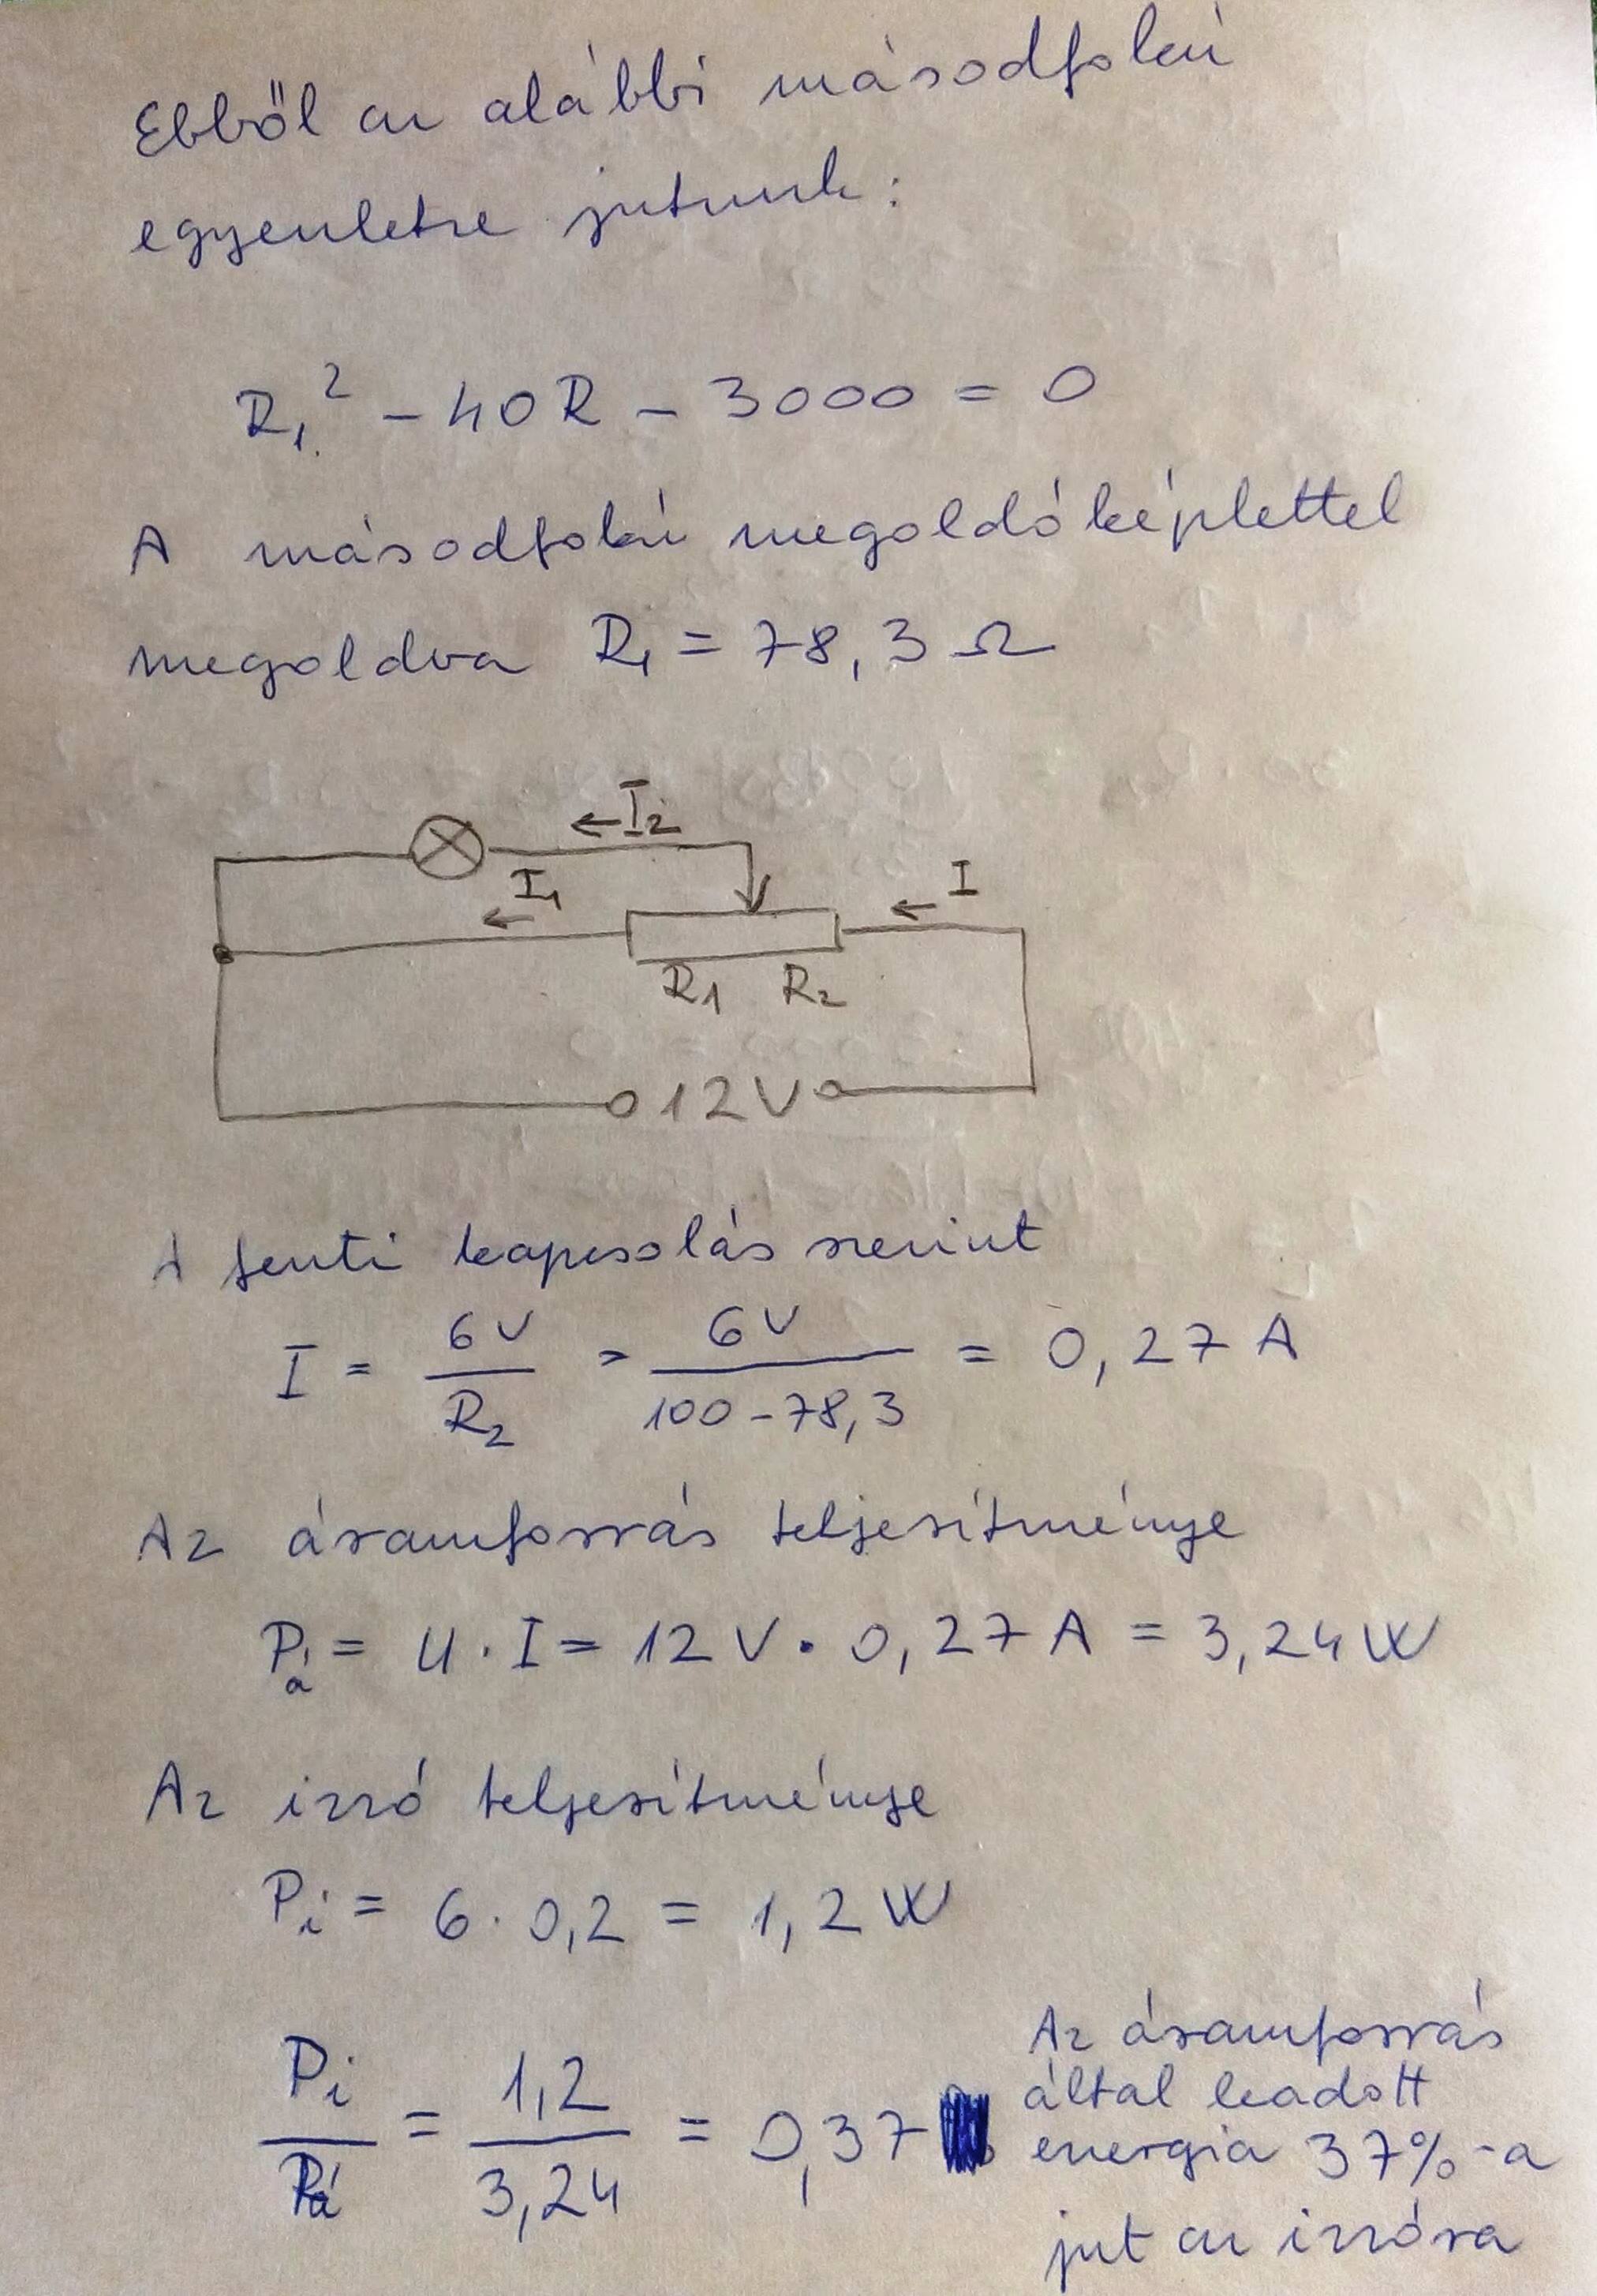 Ebből az alábbi másodfokú
egyenletre jutunk:
R₁² - 40R - 3000 = 0
A másodfokú megoldóképlettel
megoldva R₁ = 78,3 Ω
← I₂
I₁
←
← I
R₁ R₂
12V
A fenti kapcsolás szerint
I = 6V/R₂ = 6V/(100-78,3) = 0,27 A
Az áramforrás teljesítménye
Pá = U · I = 12 V · 0,27 A = 3,24 W
Az izzó teljesítménye
Pi = 6 · 0,2 = 1,2 W
Pi/Pá = 1,2/3,24 = 0,37
Az áramforrás
által leadott
energia 37%-a
jut az izzóra